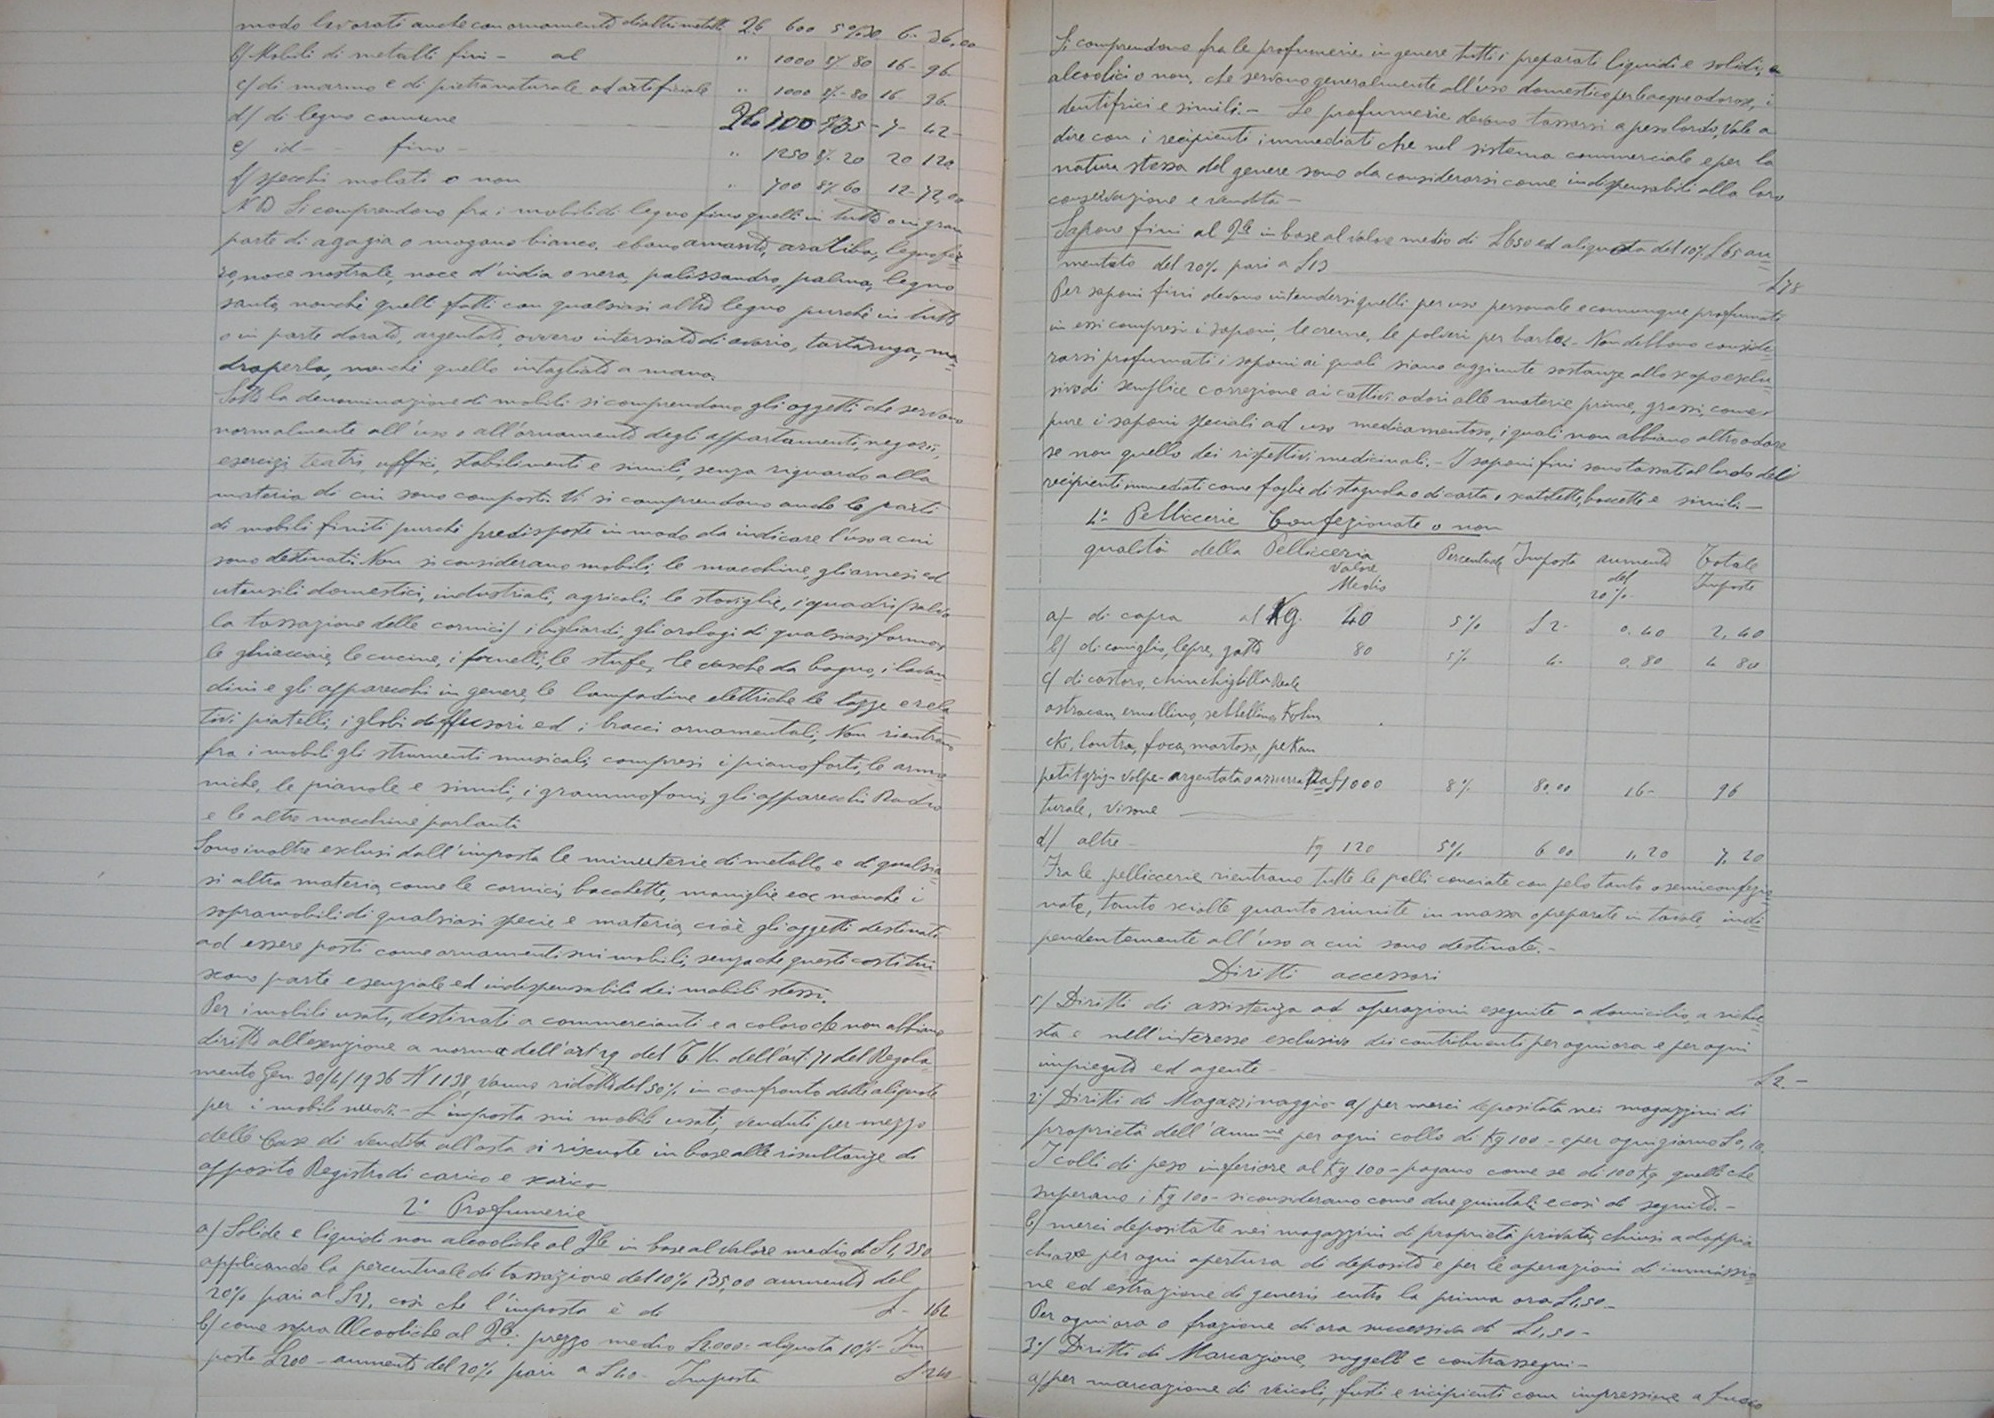 modo lavorati anche con ornamenti di altri metalli Q.le 600 5% 30 6- 36,00
b/ Mobili di metalli fini - al " 1000 8% 80 16- 96-
c/ di marmo e di pietra naturale od artificiale " 1000 8%- 80 16 96-
d/ di legno comune Q.le 700 5% 35- 7- 42-
e/ id- - fino - " 1250 8% 20 20 120
f/ specchi molati o non " 700 8% 60 12- 72,00
N B Si comprendono fra i mobili di legno fino quelli in tutto o in gran
parte di agagia o mogano bianco, ebano amaranto, aratiba, legno
noce nostrale, noce d'india o nera, palissandro, palma, legno
santo, nonchè quelli fatti con qualsiasi altro legno purchè in tutto
o in parte dorato, argentato, ovvero intersiato di avorio, tartaruga, ma
dreperla, nonchè quello intagliato a mano.
Sotto la denominazione di mobili si comprendono gli oggetti che servono
normalmente all'uso o all'ornamento degli appartamenti, negozi,
esercizi, teatri, uffici, stabilimenti e simili, senza riguardo alla
materia di cui sono composti. Vi si comprendono anche le parti
di mobili finiti purchè predisposte in modo da indicare l'uso a cui
sono destinati. Non si considerano mobili, le macchine, gli arnesi ed
utensili domestici, industriali, agricoli, le stoviglie, i quadri (salvo
la tassazione delle cornici) i bigliardi, gli orologi di qualsiasi forma,
le ghiacciaie, le cucine, i fornelli, le stufe, le vasche da bagno, i lavan
dini e gli apparecchi in genere, le lampadine elettriche le tazze e rela
tivi piattelli, i globi diffusori ed i bracci ornamentali, Non rientrano
fra i mobili gli strumenti musicali, compresi i pianoforti, le armo
niche, le pianole e simili, i grammofoni, gli apparecchi Radio
e le altre macchine parlanti
Sono inoltre esclusi dall'imposta le minuterie di metallo e di qualsia
si altra materia, come le cornici, bacchette, maniglie ecc nonchè i
sopramobili di qualsiasi specie e materia, cioè gli oggetti destinati
ad essere posti come ornamenti sui mobili, senza che questi costitui
scano parte essenziale ed indispensabili dei mobili stessi.
Per i mobili usati, destinati a commercianti e a coloro che non abbiano
diritto all'esenzione a norma dell'art 29 del T.U. dell'art 71 del Regola
mento Gen 30/4/1936 N 1138, vanno ridotti del 50% in confronto delle aliquote
per i mobili nuovi- L'imposta sui mobili usati, venduti per mezzo
delle Case di Vendita all'asta si riscuote in base alle risultanze di
apposito Registro di carico e scarico
2° Profumerie
a/ Solide e liquidi non alcooliche al Q.le in base al valore medio di L 1,350
applicando la percentuale di tassazione del 10% 135,00 aumento del
20% pari al L 27, così che l'imposta è di L- 162
b/ come sopra Alcooliche al Q.le. prezzo medio L 2000= aliquota 10%- Im
posta L 200 - aumento del 20% pari a L 40- Imposta L-240
Si comprendono fra le profumerie in genere tutti i preparati liquidi e solidi,
alcoolici o non, che servono generalmente all'uso domestico per le acque odorose, i
dentifrici e simili.- Le profumerie devono tassarsi a peso lordo, vale a
dire con i recipienti immediati che nel sistema commerciale e per la
natura stessa del genere sono da considerarsi come indispensabili alla loro
conservazione e vendita-
Sapone fini al Q.le in base al valore medio di L 650 ed aliquota del 10% L 65 au
mentato del 20% pari a L 13 L 78
Per saponi fini devono intendersi quelli per uso personale e comunque profumati
in essi compresi i saponi, le creme, le polveri per barba.- Non debbono conside
rarsi profumati i saponi ai quali siano aggiunte sostanze allo scopo esclu
sivo di semplice correzione ai cattivi odori alle materie prime, grassi, come
pure i saponi speciali ad uso medicamentoso, i quali non abbiano altro odore
se non quello dei rispettivi medicinali.- I saponi fini sono tassati al lordo dei
recipienti immediati come foglie di stagnola o di carta, scatolette, boccette e simili-
4° Pelliccerie Confezionate o non
qualità della Pellicceria Valore Medio Percentuale Imposta aumento del 20% Totale Imposte
a/- di capra al Kg. 40 5% L 2- 0.40 2,40
b/ di coniglio, lepre, gatto 80 5% 4- 0,80 4 80
c/ di castoro, chinchiglilla Reale
astracan, ermellino, zibellino, Kolin
cki, lontra, foca, martora, pekan
petit gris- volpe- argentata o azzurra na L 1000 8% 80,00 16- 96
turale, visone
d/ altre- Kg 120 5% 6 00 1,20 7,20
Fra le pelliccerie rientrano tutte le pelli conciate con pelo tanto o semiconfezio
nate, tanto sciolte quanto riunite in massa o preparate in tavole, indi
pendentemente all'uso a cui sono destinate.-
Diritti accessori
1/ Diritti di assistenza ad operazioni eseguite a domicilio, a richie
sta e nell'interesse esclusivo dei contribuenti per ogni ora e per ogni
impiegato ed agente- L 2-
2/ Diritti di Magazzinaggio- a/ per merci depositata nei magazzini di
proprietà dell'amm.ne per ogni collo di Kg 100- e per ogni giorno L 0,10
I colli di peso inferiore al Kg 100- pagano come se di 100 Kg quelli che
superano i Kg 100- si considerano come due quintali e così di seguito.-
b/ merci depositate nei magazzini di proprietà privata, chiusi a doppia
chiave per ogni apertura di deposito e per le operazioni di immissio
ne ed estrazione di generi entro la prima ora L 1,50-
Per ogni ora o frazione di ora successiva di L 1,50-
3°/ Diritti di Marcazione, suggelli e contrassegni-
a/ per marcazione di veicoli, fusti e recipienti con impressione a fuoco